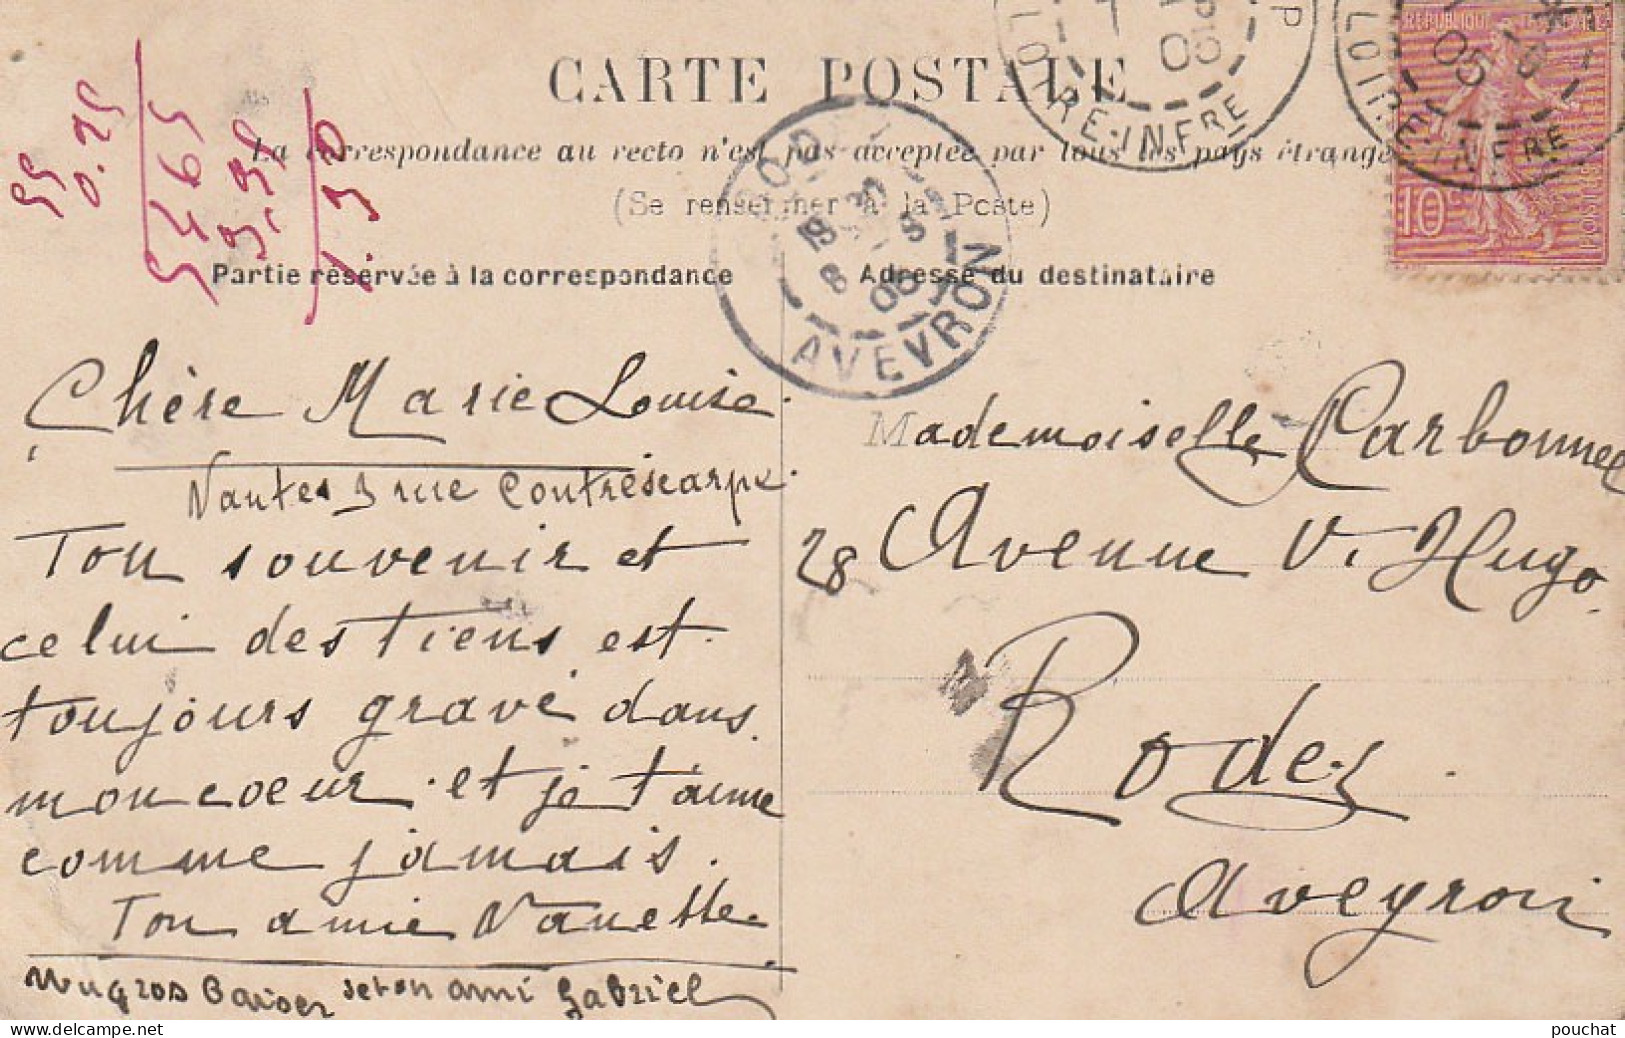 CARTE POSTALE
La correspondance au recto n'est pas acceptée par tous les pays étrange
(Se renseigner à la Poste)
Partie réservée à la correspondance
Adresse du destinataire
RÉPUBLIQUE FRANÇAISE
10
POSTES
LOIRE-INFRE
05
LOIRE-INFRE
05
AVEYRON
05
0.25
Chère Marie Louise.
Nantes 3 rue Contrescarpe.
Ton souvenir et
celui des tiens est
toujours gravé dans
mon coeur et je t'aime
comme jamais.
Ton amie Nanette
un gros Baiser de ton ami Gabriel
Mademoiselle Carbonnel
28 Avenue V. Hugo
Rodez
Aveyron
pouchat